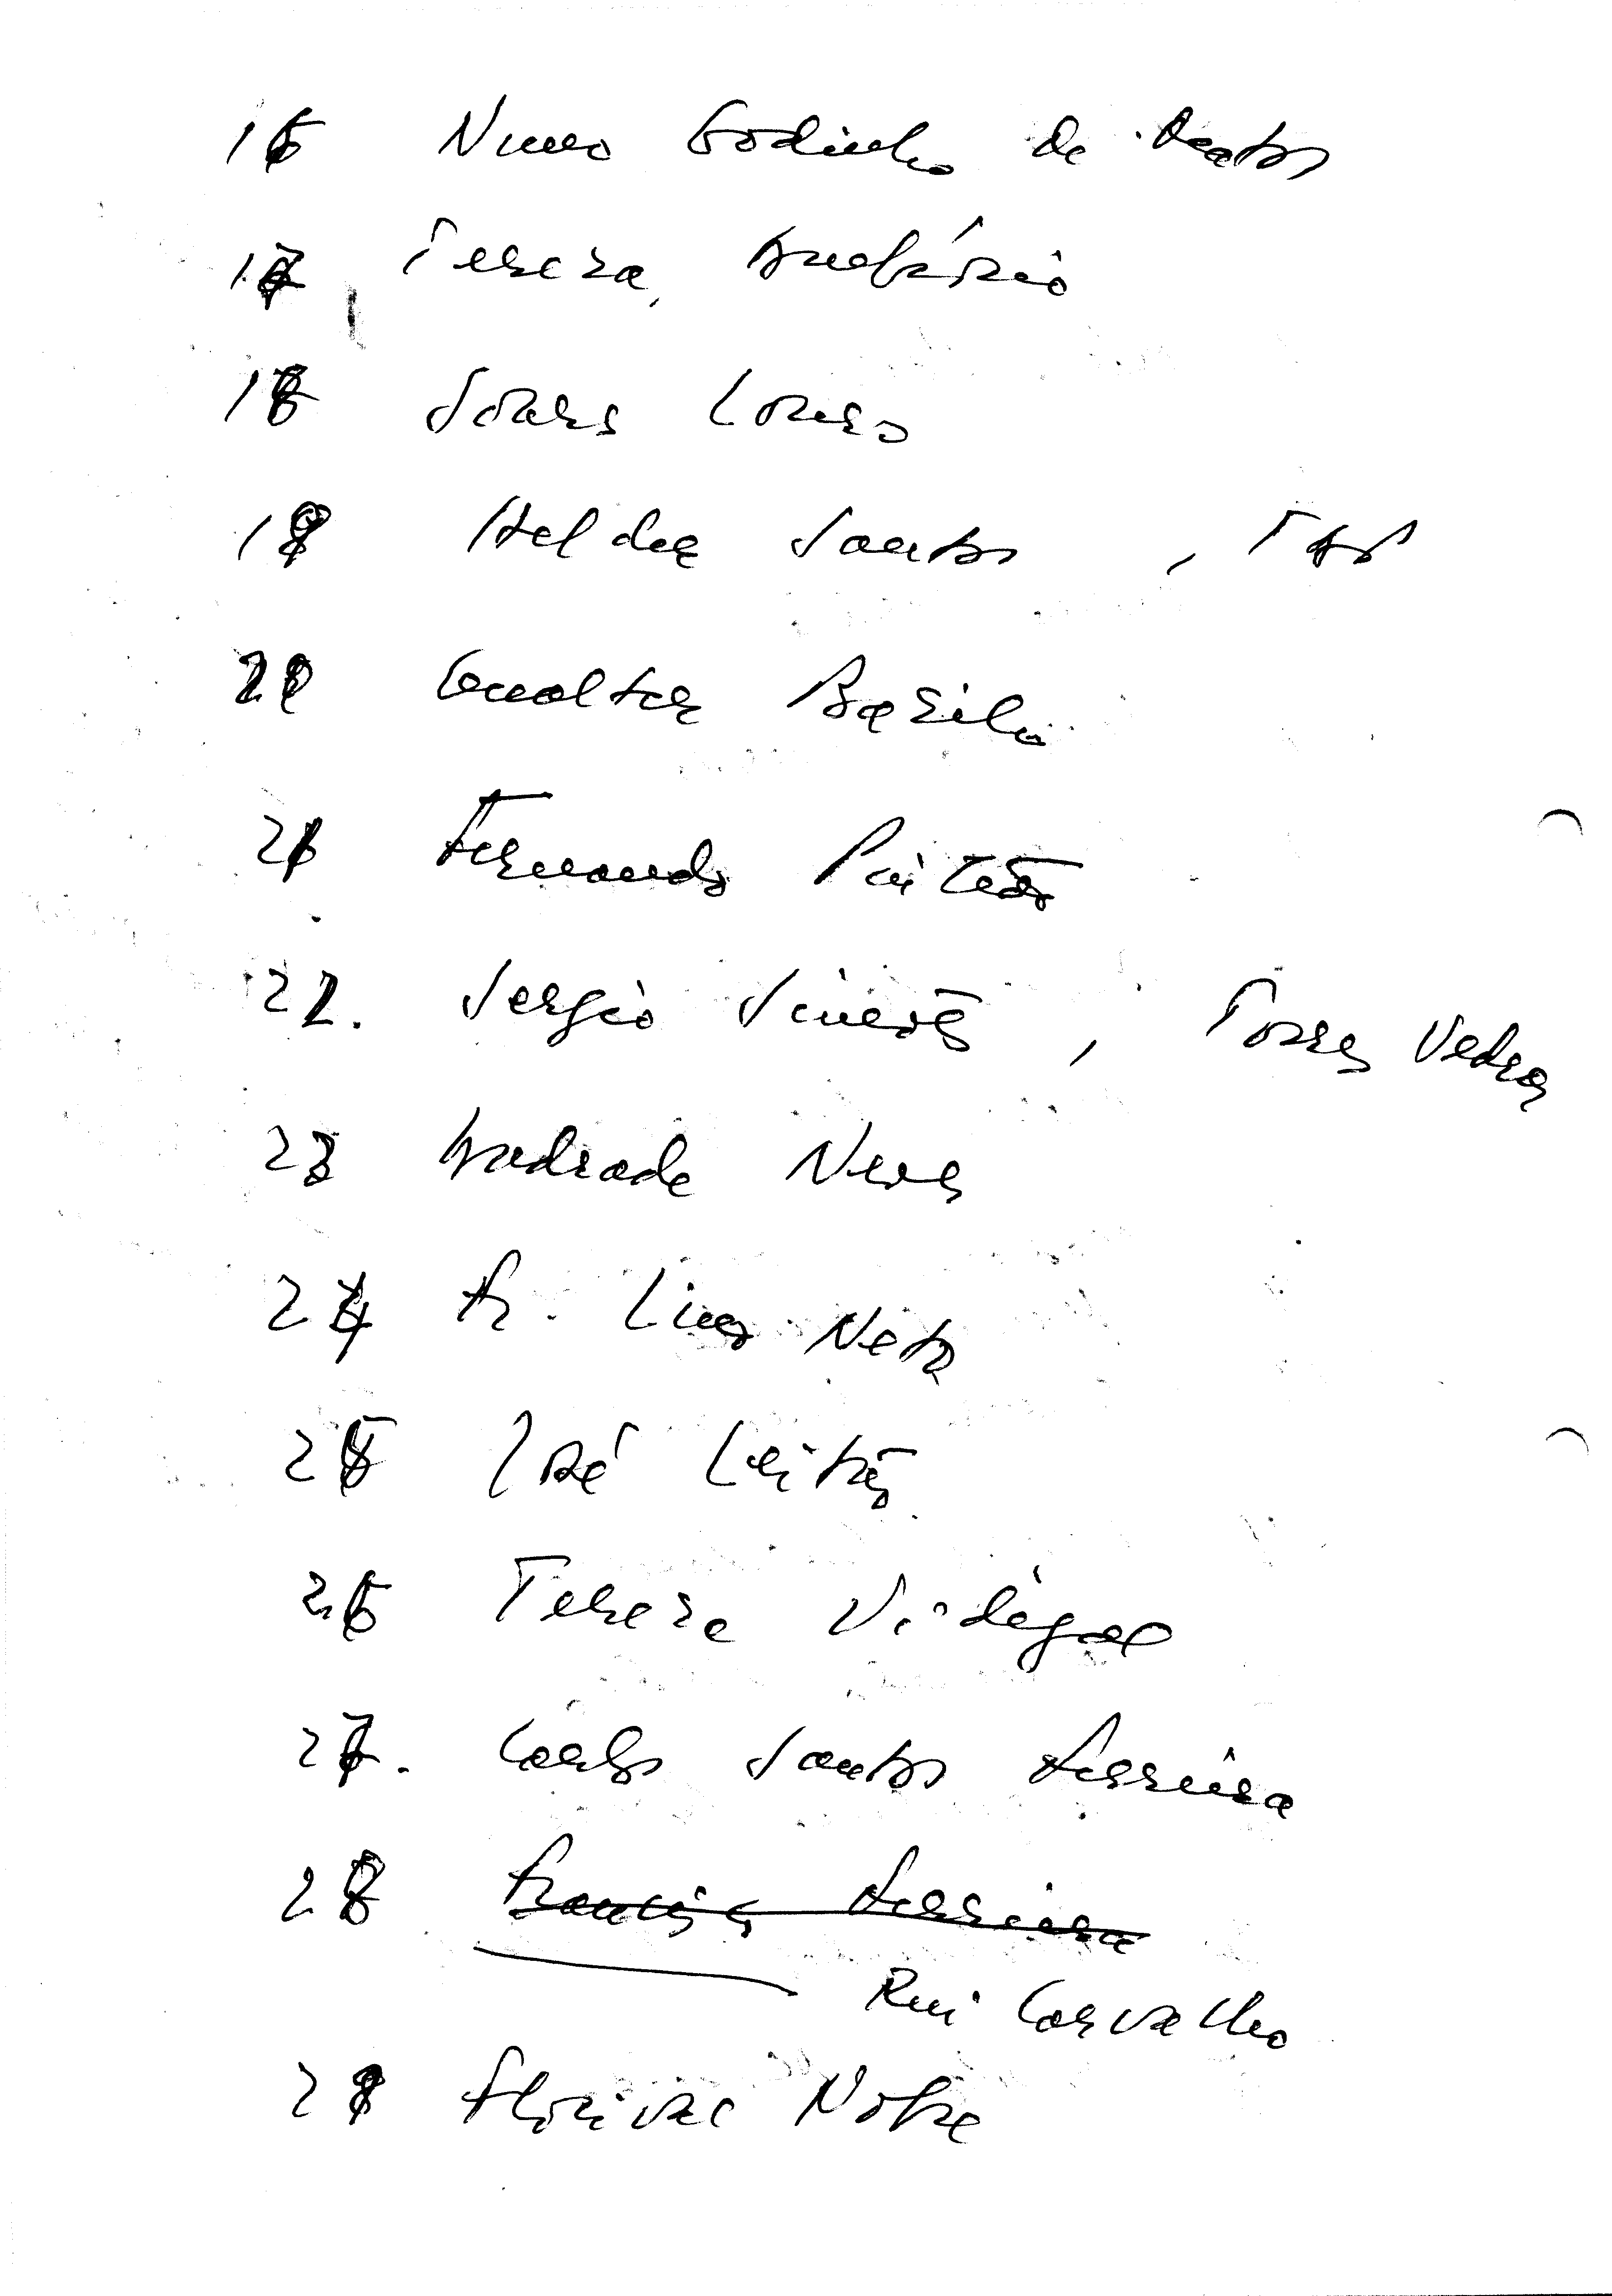 16 Nuno Godinho de Matos
17 Tereza Ambrósio
18 Soares Louro
19 Helder Santos, TAP
20 Gualter Basílio
21 Fernando
22. Sergio Simões, Torres Vedras
23 Andrade Neves
24 Fr. Lino Neto
25 José Leitão
26 Tereza Vidigal
27. Carlos Santos Ferreira
28 Francisco Ferreira
Rui Carvalho
29 Florival Nobre